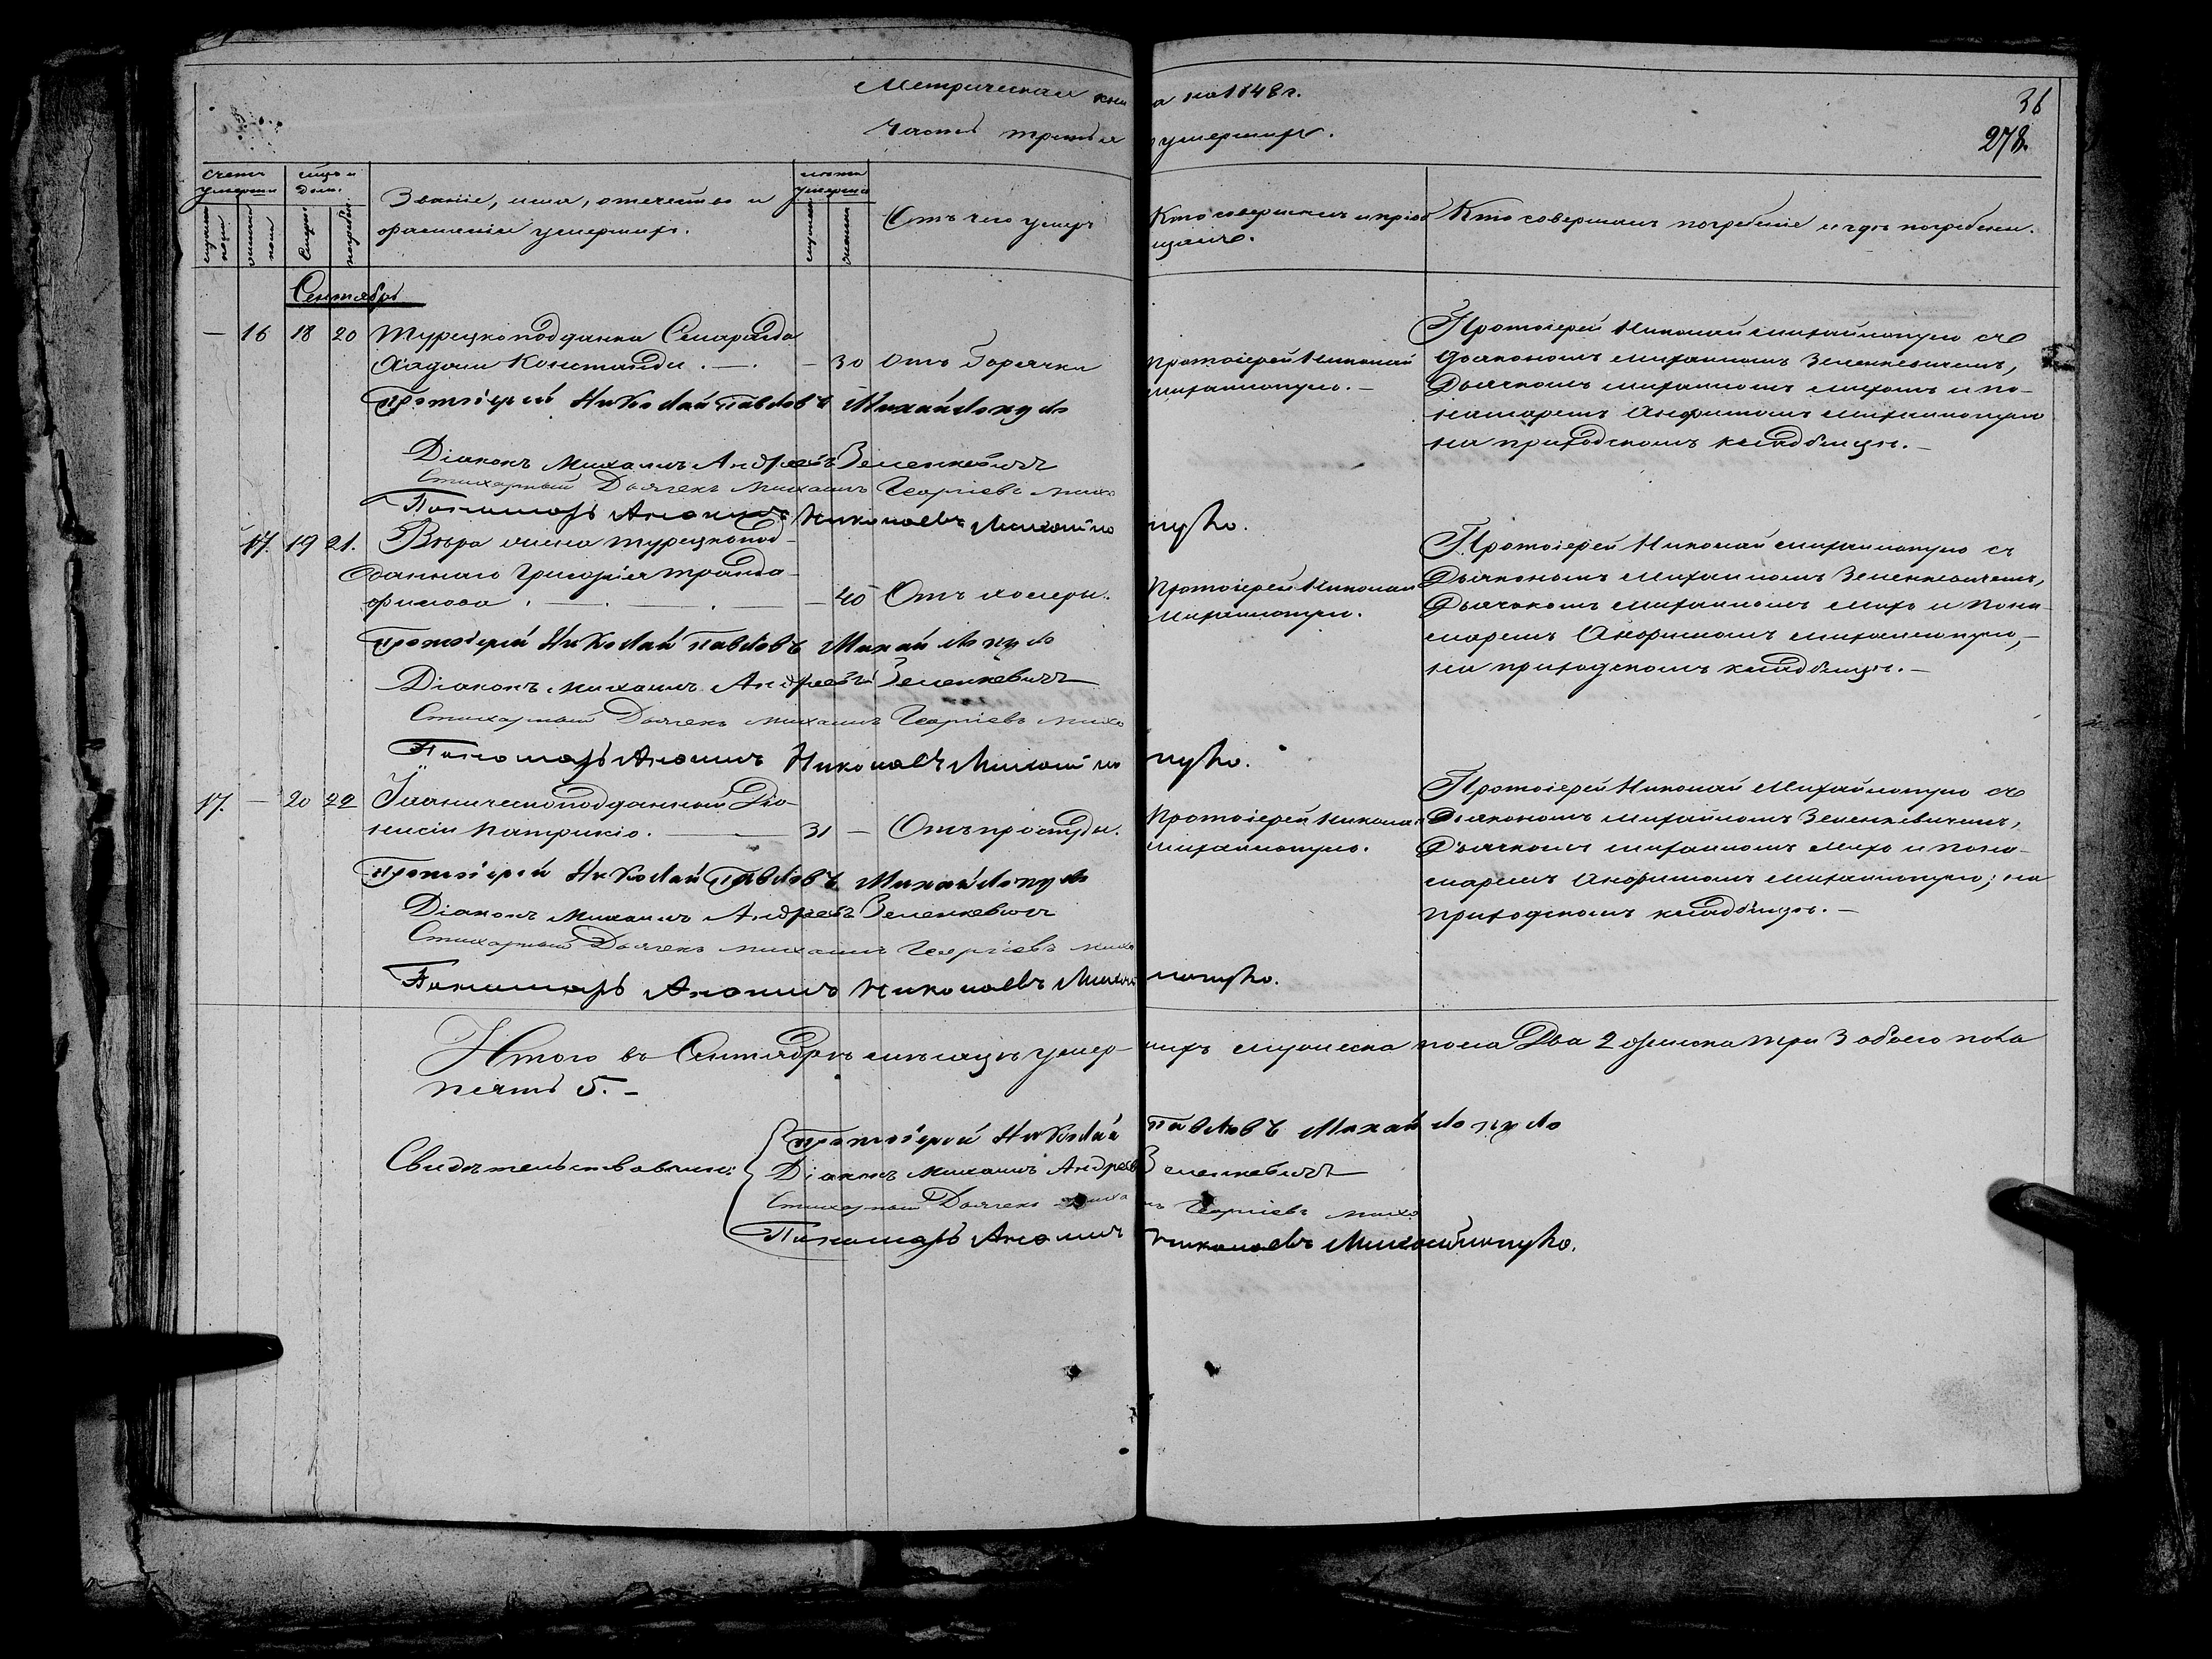 Метрическая книга на 1848 г.
36
Часть третья о умершихъ.
278.
Счетъ умершихъ
мужеска пола
женска пола
Мѣсяцъ и день
Смерти
погребенія
Званіе, имя, отечество и
фамилія умершихъ.
лѣта умершаго
мужеска
женска
Отъ чего умеръ
Кто совершилъ и пріоб
щалъ.
Кто совершалъ погребеніе и гдѣ погребены.
Сентябрь
— 16 18 20 Турецкоподданка Смарагда
Хаджи Констанди. — . — 30 Отъ Горячки
Протоіерей Николай
Михайлопуло. —
Протоіерей Николай Михайлопуло съ
Діакономъ Михаиломъ Зеленкевичемъ,
Дьячкомъ Михаиломъ Михо и по-
намаремъ Анфимомъ Михаилопуло
на приходскомъ кладбищѣ. —
Протоіерей Николай Павловъ Михайлопуло
Діаконъ Михаилъ Андреевъ Зеленкевичъ
Стихарный Дьячекъ Михаилъ Георгіевъ Михо
Пономарь Анфимъ Николаевъ Михайлопуло.
17. 19 21. Вѣра жена турецкопод-
даннаго Григорія Транда-
филова. — . — . — 40 Отъ холеры.
Протоіерей Николай
Михаилопуло.
Протоіерей Николай Михаилопуло съ
Діакономъ Михаиломъ Зеленкевичемъ,
Дьячкомъ Михаиломъ Михо и Поно-
маремъ Анфимомъ Михаилопуло, —
на приходскомъ кладбищѣ. —
Протоіерей Николай Павловъ Михайлопуло
Діаконъ Михаилъ Андреевъ Зеленкевичъ
Стихарный Дьячекъ Михаилъ Георгіевъ Михо
Пономарь Анфимъ Николаевъ Михайлопуло.
17. — 20 22 Іоаническоподданный Діо-
нисій Патрикіо. — 31 — Отъ простуды.
Протоіерей Николай
Михаилопуло.
Протоіерей Николай Михайлопуло съ
Діакономъ Михайломъ Зеленкевичемъ,
Дьячкомъ Михаиломъ Михо и поно-
маремъ Анфимомъ Михаилопуло; на
приходскомъ кладбищѣ. —
Протоіерей Николай Павловъ Михайлопуло
Діаконъ Михаилъ Андреевъ Зеленкевичъ
Стихарный Дьячекъ Михаилъ Георгіевъ Михо
Пономарь Анфимъ Николаевъ Михайлопуло.
Итого въ Сентябрѣ мѣсяцѣ умершихъ мужеска пола Два 2 женска три 3 обоего пола
пять 5. —
Свидѣтельствовали:
Протоіерей Николай Павловъ Михайлопуло
Діаконъ Михаилъ Андреевъ Зеленкевичъ
Стихарный Дьячекъ Михаилъ Георгіевъ Михо
Пономарь Анфимъ Николаевъ Михайлопуло.